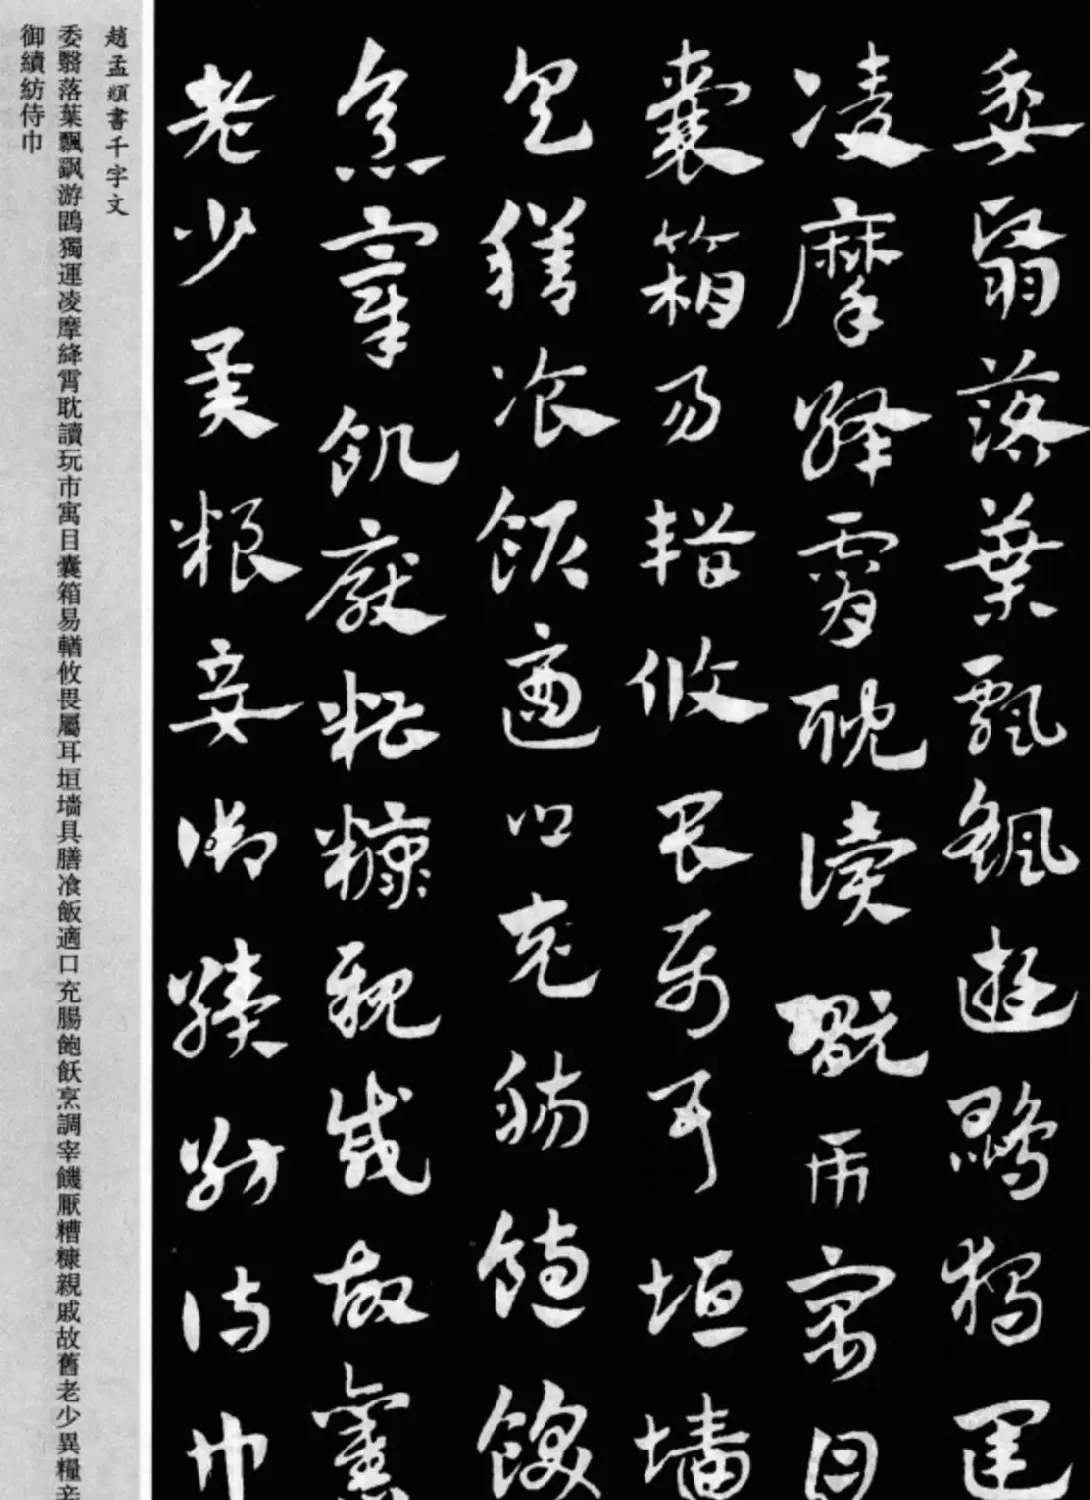 委翳落葉飄颻遊鵾獨運
凌摩絳霄耽讀翫市寓目
囊箱易輶攸畏屬耳垣墻
具膳飡飯適口充腸飽飫
烹宰飢厭糟糠親戚故舊
老少異糧妾御績紡侍巾
趙孟頫書千字文
委翳落葉飄颻游鵾獨運凌摩絳霄耽讀玩市寓目囊箱易輶攸畏屬耳垣墻具膳飡飯適口充腸飽飫烹調宰饑厭糟糠親戚故舊老少異糧妾
御績紡侍巾